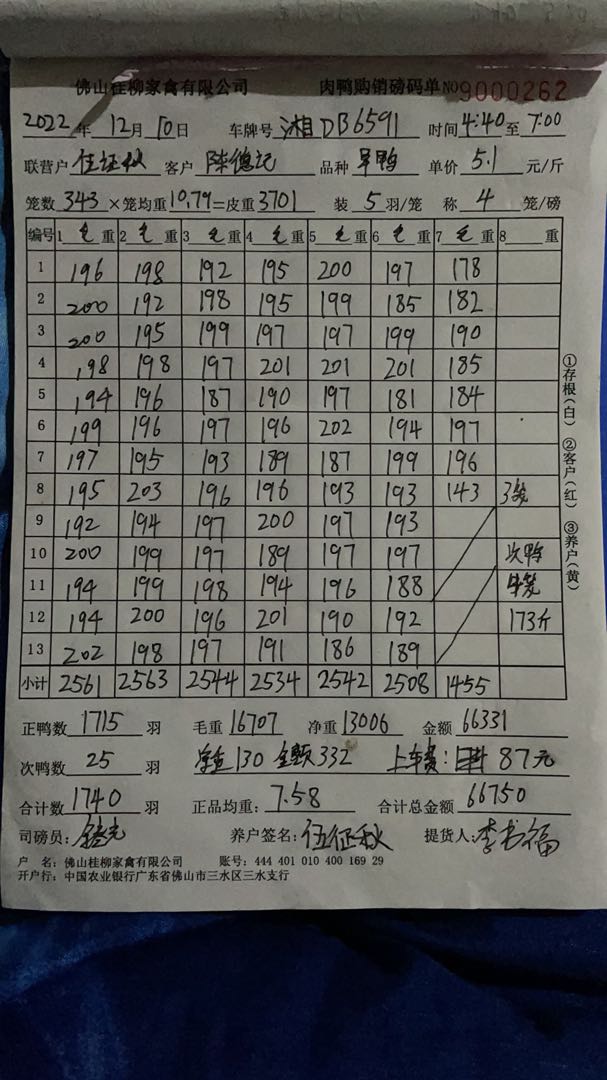 佛山桂柳家禽有限公司 肉鸭购销磅码单 NO 9000262
2022年 12月 10日 车牌号 湘DB6591 时间 4:40 至 7:00
联营户 伍征秋 客户 陈德记 品种 旱鸭 单价 5.1 元/斤
笼数 343 ×笼均重 10.79 =皮重 3701 装 5 羽/笼 称 4 笼/磅
编号 1 毛重 2 毛重 3 毛重 4 毛重 5 毛重 6 毛重 7 毛重 8 重
1 196 198 192 195 200 197 178
2 200 192 198 195 199 185 182
3 200 195 199 197 197 199 190
4 198 198 197 201 201 201 185
5 194 196 187 190 197 181 184
6 199 196 197 196 202 194 197
7 197 195 193 189 187 199 196
8 195 203 196 196 193 193 143 3笼
9 192 194 197 200 197 193
10 200 199 197 189 197 197 次鸭
11 194 199 198 194 196 188
12 194 200 196 201 190 192 173斤
13 202 198 197 191 186 189
小计 2561 2563 2544 2534 2542 2508 1455
正鸭数 1715 羽 毛重 16707 净重 13006 金额 66331
次鸭数 25 羽 130 金额 332 上车费: 87元
合计数 1740 羽 正品均重: 7.58 合计总金额 66750
司磅员: 养户签名: 伍征秋 提货人: 李书福
户 名: 佛山桂柳家禽有限公司 账号: 444 401 010 400 169 29
开户行: 中国农业银行广东省佛山市三水区三水支行
①存根(白) ②客户(红) ③养户(黄)